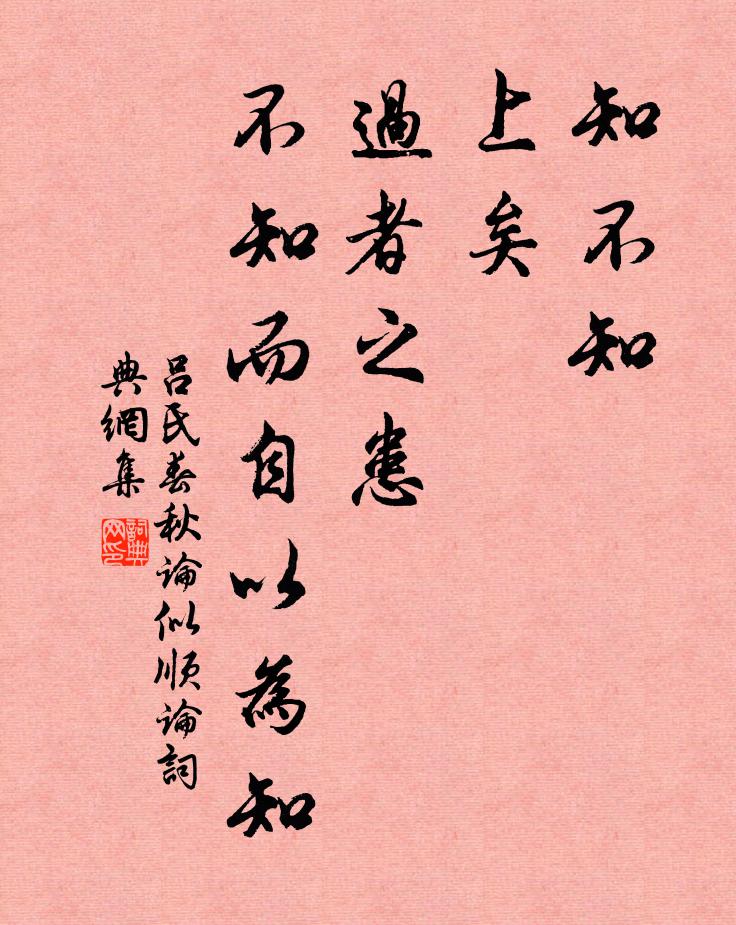 知不知
上矣
過者之患
不知而自以為知
呂氏春秋論似順論詞
典網集
詞典
网印